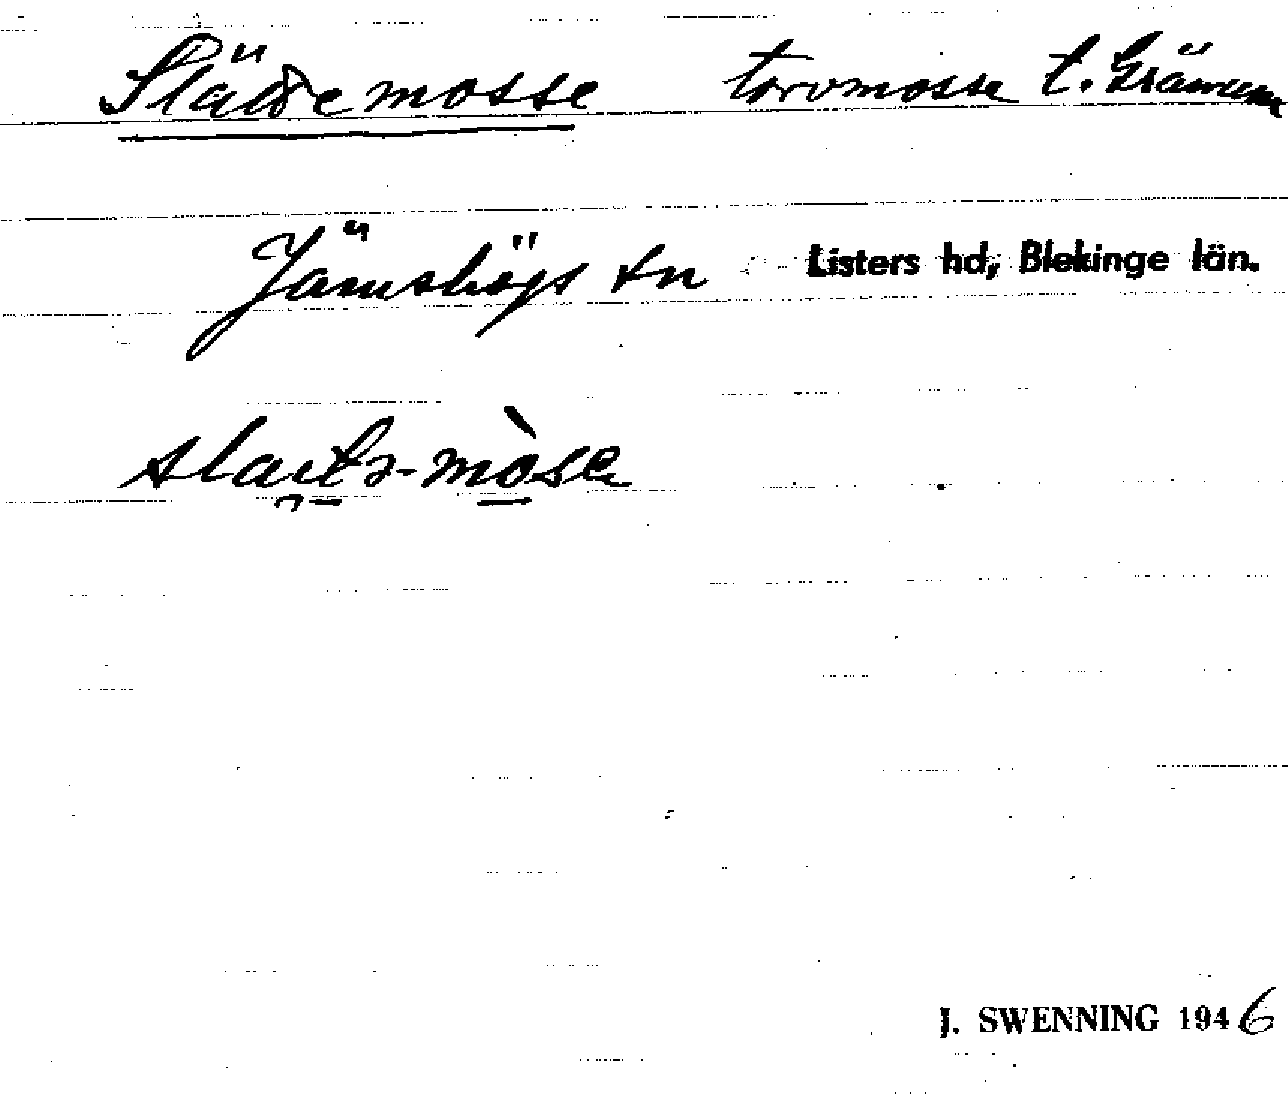 Slättemosse torvmosse t. Grämum
Jämshögs sn Listers hd, Blekinge län.
J. SWENNING 1946